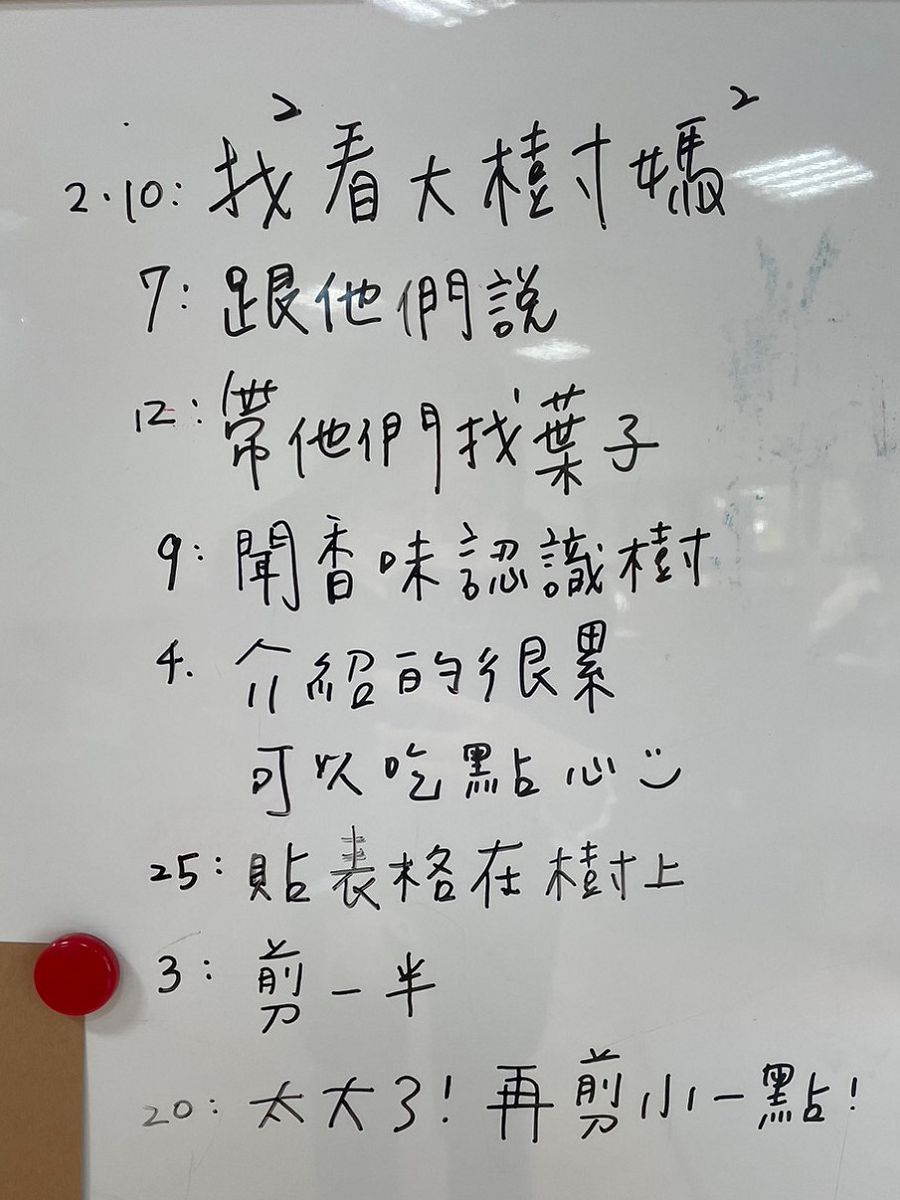 2.10: 找²看大樹媽²
7: 跟他們說
12: 帶他們找葉子
9: 聞香味認識樹
4. 介紹的很累
可以吃點心 :)
25: 貼表格在樹上
3: 剪一半
20: 太大了! 再剪小一點!